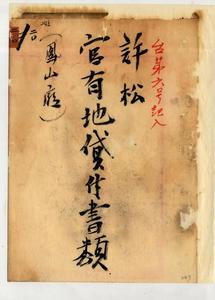 台第六号記入
許松
官有地貸付書類
(鳳山廳)